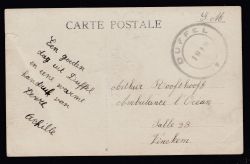 S. M.
CARTE POSTALE
DUFFEL
Een goeden
dag uit Duffel
en eene warme
handdruk van
Achille
Arthur Kooftkooft
Ambulance l'Océan
Salle 28
Vinckem